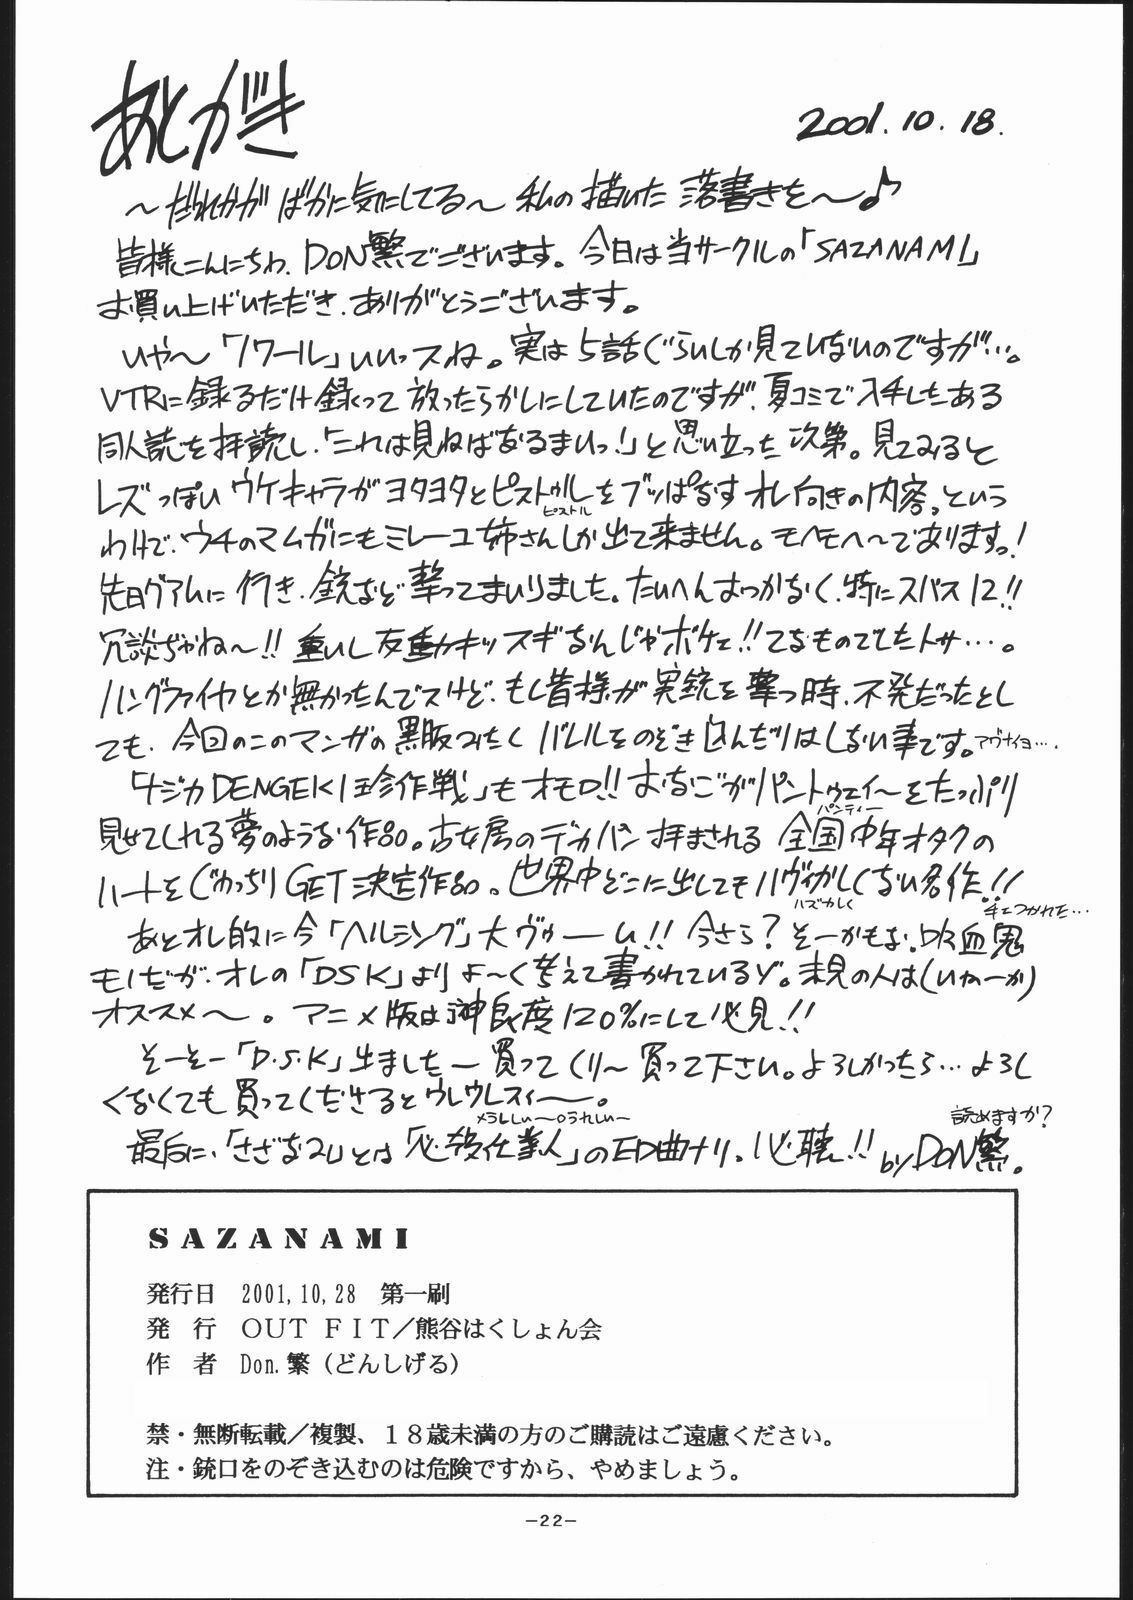 あとがき
2001.10.18.
〜だれかがばかに気にしてる〜私の描いた落書きを〜♪
皆様こんにちわ、DON繁でございます。今日は当サークルの「SAZANAMI」
お買い上げいただき、ありがとうございます。
いや〜「ノワール」いいっスね。実は5話ぐらいしか見ていないのですが…。
VTRに録るだけ録って放ったらかしにしていたのですが、夏コミで入手したある
同人誌を拝読し、「これは見ねばなるまいっ!」と思い立った次第。見てみると
レズっぽいウケキャラがヨタヨタとピストルをブッぱなすオレ向きの内容。という
ピストル
わけで、ウチのマムガにもミレーユ姉さんしか出て来ません。モヘモヘ〜でありますっ!
先日グアムに行き、銃など撃ってまいりました。たいへんおっかなく、特にスパス12!!
冗談ぢゃね〜!! 重いし反動キッスギなんじゃボケェ!!てなものでしたトサ…。
ハングファイヤとか無かったんでスけど、もし皆様が実銃を撃つ時、不発だったとし
ても、今回のこのマンガの黒服みたくバレルをのぞき込んだりはしない事です。アヴナイヨ…。
「ナジカDENGEKI珍作戦」もオモロ!! おなごがパントゥェイ〜をたっぷり
パンティー
見せてくれる夢のような作品。古女房のデカパン拝まされる全国中年オタクの
ハートをぐわっちりGET決定作品。世界中どこに出してもハヴィかしくない名作!!
ハズカしく
手につかれた…
あとオレ的に今「ヘルシング」大ヴゥーム!! 今さら?そーかもな。吸血鬼
モノだが、オレの「DSK」よりよ〜く考えて書かれているゾ。未見の人は(いねーか)
オススメ〜。アニメ版は沖良度120%にして必見!!
そーそー「D.S.K」出ました―買ってくり〜買って下さい。よろしかったら…よろし
くなくても買ってくださるとウレウレスィー。
×うらしい〜○うれしい〜
読めますか?
最后に、「さざなみ」とは「必殺仕業人」のED曲ナリ。必聴!! by DON繁。
SAZANAMI
発行日 2001,10,28 第一刷
発 行 OUT FIT/熊谷はくしょん会
作 者 Don.繁(どんしげる)
禁・無断転載/複製、18歳未満の方のご購読はご遠慮ください。
注・銃口をのぞき込むのは危険ですから、やめましょう。
-22-